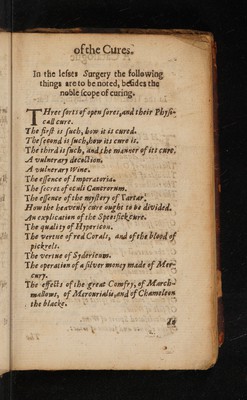 of the Cures.
In the lesser Surgery the following
things are to be noted, besides the
noble scope of curing.
THree sorts of open sores, and their Physi-
call cure.
The first is such, how it is cured.
The second is such, how its cure is.
The third is such, and the manner of its cure.
A vulnerary decoction.
A vulnerary Wine.
The essence of Imperatoria.
The secret of oculi Cancrorum.
The essence of the mystery of Tartar,
How the heavenly cure ought to be divided.
An explication of the Specifick cure.
The quality of Hypericon.
The vertue of red Corals, and of the blood of
pickrels.
The vertue of Sydericum.
The operation of a silver money made of Mer-
cury.
The effects of the great Comfry, of March-
mallows, of Mercurialis, and of Chameleon
the blacke.